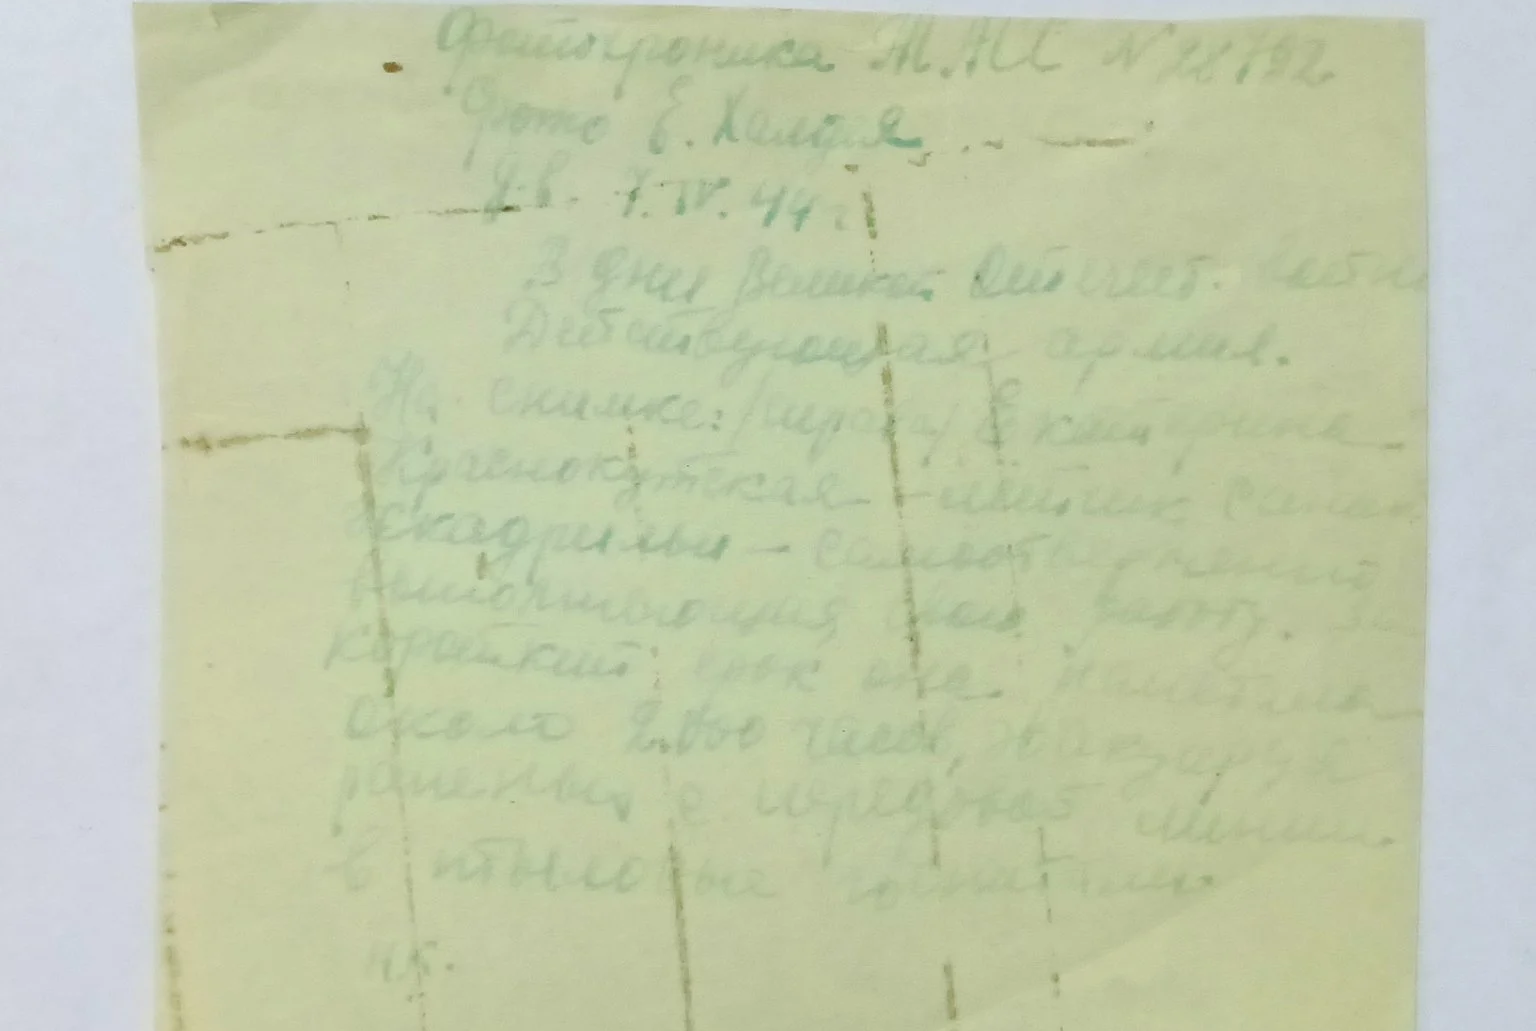 Фотохроника ТАСС №
Фото Е. Халдея
7.IV.44 г
В дни Великой Отечест.
Действующая армия.
На снимке: /справа/ Екатерина
Краснокутская - летчик
эскадрильи - самоотверженно
выполняющая свою работу. За
короткий срок она налетала
около 2.000 часов, эвакуируя
раненых с передовой линии
в тыловые госпитали.